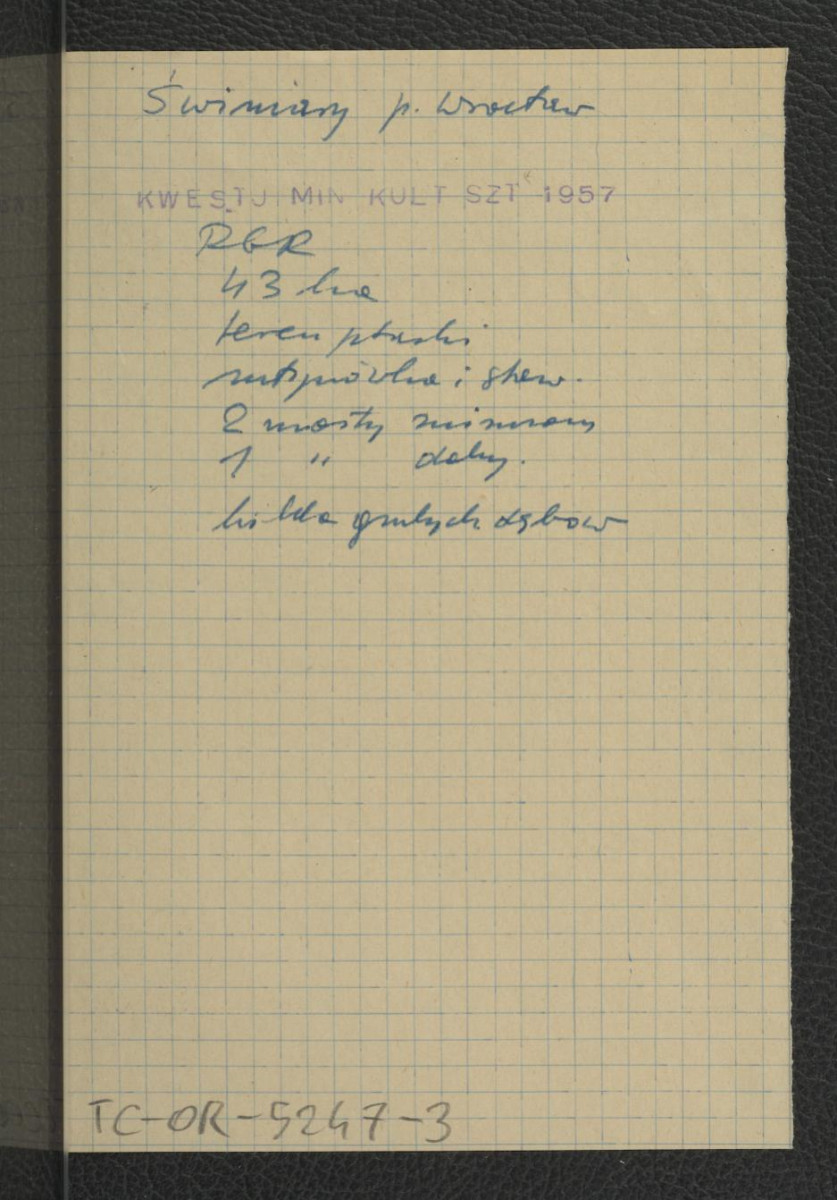 Świniary p. Wrocław
KWESTJ MIN KULT SZT 1957
PGR
43 ha
teren płaski
i staw.
2 mosty zniszczony
1 " dobry.
kilka grubych dębów
TC-OR-5247-3